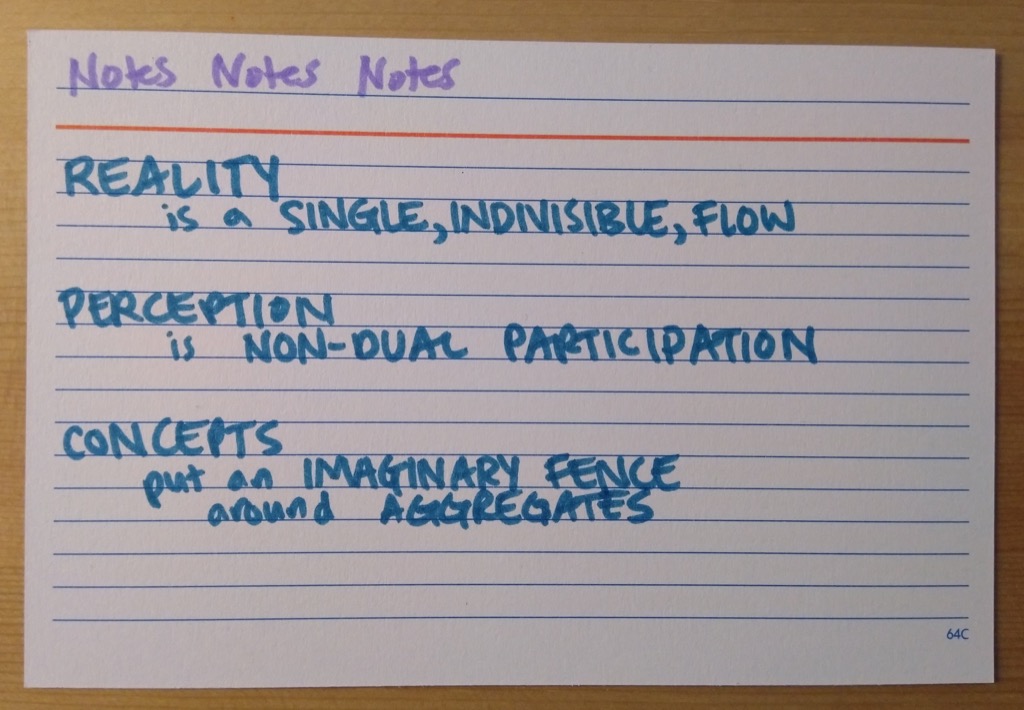 Notes Notes Notes
REALITY
is a SINGLE, INDIVISIBLE, FLOW
PERCEPTION
is NON-DUAL PARTICIPATION
CONCEPTS
put an IMAGINARY FENCE
around AGGREGATES
64C